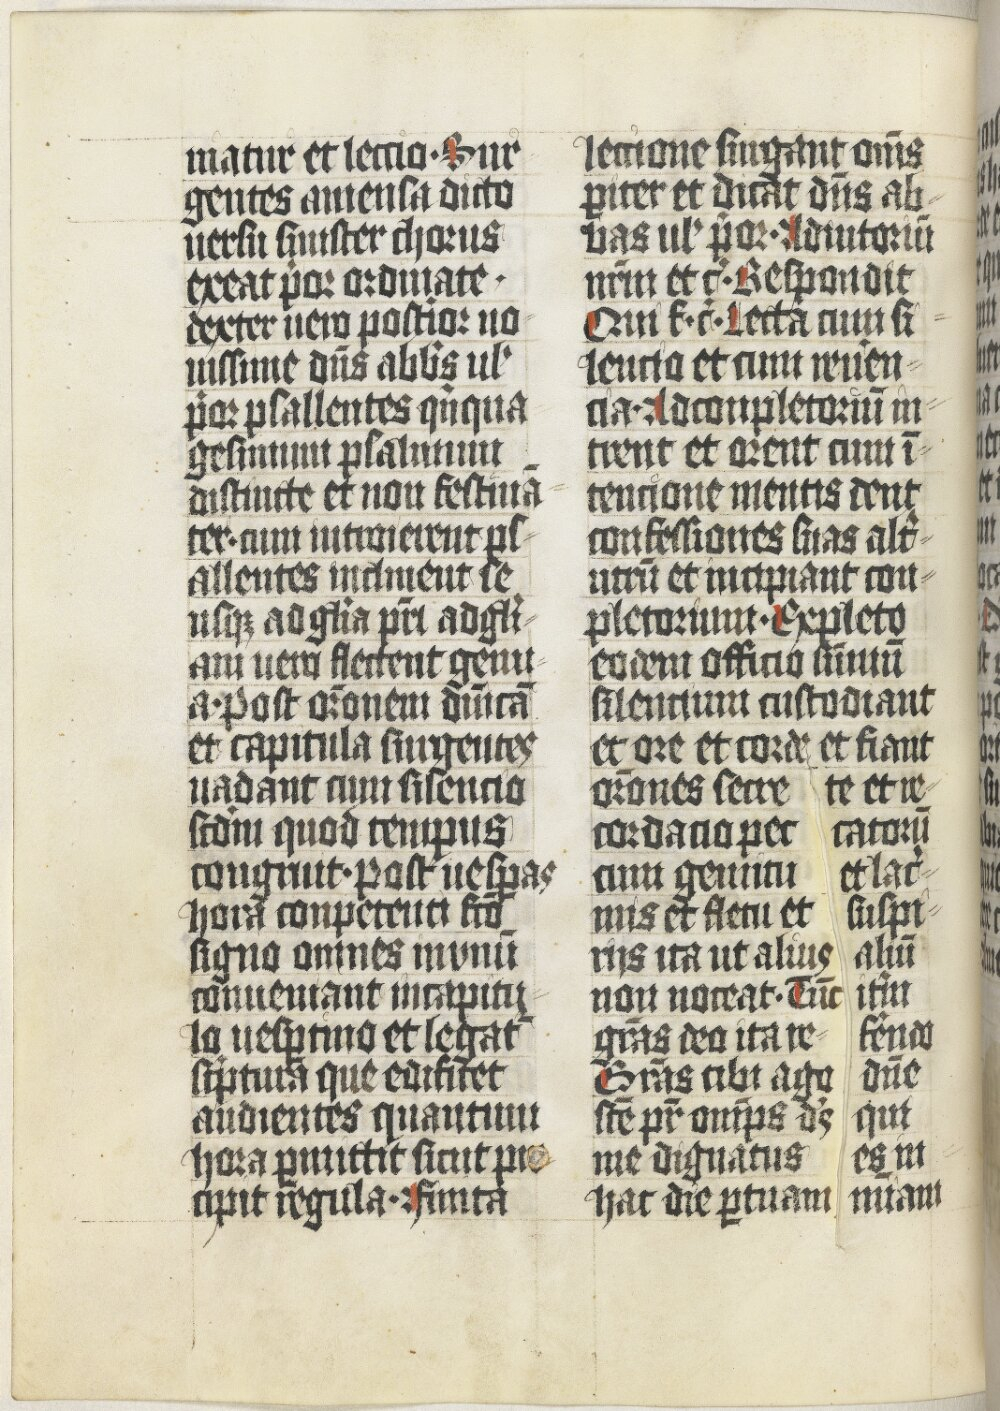 matur et lectio. Sur
gentes amensa dicto
uersu sinister chorus
exeat p̄or ordinate.
dexter uero postior no
uissime dn̄s abb̄s ul'
p̄or psallentes qn̄qua
gesimum psalmum
distincte et non festinā
ter. cum introierent ps
allentes inclinent se
usq; ad gl̄ia pr̄i ad gl̄i
am uero flectent genu
a. Post or̄onem dn̄icā
et capitula surgentes
uadant cum silencio
scdm̄ quod tempus
congruit. Post uespas
hora conpetenti fc̄o
signo omnes in vnū
conueniant in capitu
lo uesptino et legat̄
sc̄ptura que edificet
audientes quantum
hora pmittit sicut pre
cipit regula. Finita
lectione surgant om̄s
piter et dicāt dn̄s ab
bas ul' p̄or. Adiutoriū
nr̄m et c̄. Respondit
Qui f. c̄. Lecta cum si
lencio et cum reuen
cia. Ad completoriū in
trent et orent cum ī
tencione mentis dent
confessiones suas alt̄
utrū et incipiant con
pletorium. Expleto
eodem officio sūmū
silencium custodiant
et ore et corde et fiant
or̄ones secre te et re
cordatio pec catorū
cum gemitu et lac̄
mis et fletu et suspi
riis ita ut alius aliū
non noceat. Tūc itm̄
grās deo ita re fendo
Grās tibi ago dn̄e
sc̄e pr̄ om̄ps ds̄ qui
me dignatus es in
hac die ptuam mīam